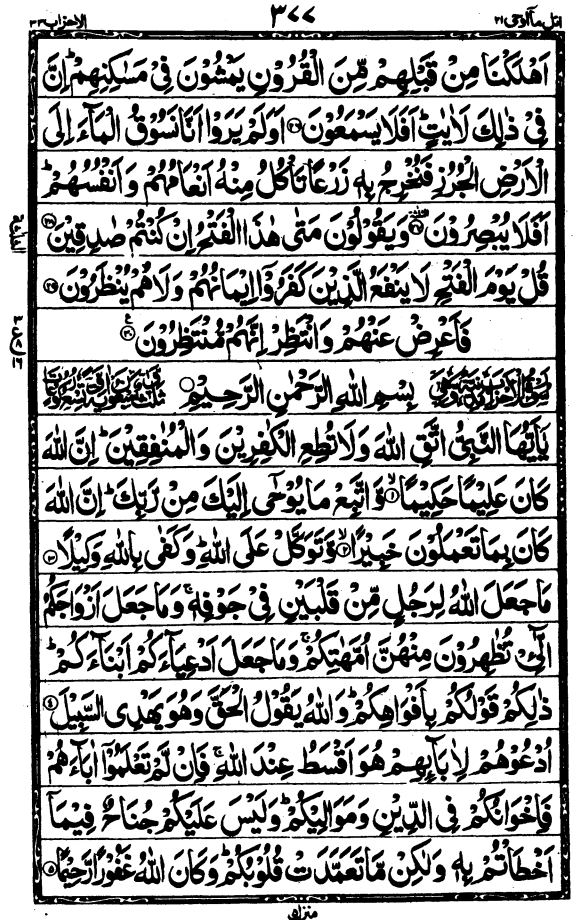 اتل ماۤ اوحی ۲۱ ۳۷۷ الاحزاب ۳۳
اَهْلَكْنَا مِنْ قَبْلِهِمْ مِّنَ الْقُرُوْنِ يَمْشُوْنَ فِيْ مَسٰكِنِهِمْ ؕ اِنَّ
فِيْ ذٰلِكَ لَاٰيٰتٍ ؕ اَفَلَا يَسْمَعُوْنَ ﴿۲۶﴾ اَوَلَمْ يَرَوْا اَنَّا نَسُوْقُ الْمَآءَ اِلَى
الْاَرْضِ الْجُرُزِ فَنُخْرِجُ بِهٖ زَرْعًا تَاْكُلُ مِنْهُ اَنْعَامُهُمْ وَاَنْفُسُهُمْ ؕ
اَفَلَا يُبْصِرُوْنَ ﴿۲۷﴾ وَيَقُوْلُوْنَ مَتٰى هٰذَا الْفَتْحُ اِنْ كُنْتُمْ صٰدِقِيْنَ ﴿۲۸﴾
قُلْ يَوْمَ الْفَتْحِ لَا يَنْفَعُ الَّذِيْنَ كَفَرُوْۤا اِيْمَانُهُمْ وَلَا هُمْ يُنْظَرُوْنَ ﴿۲۹﴾
فَاَعْرِضْ عَنْهُمْ وَانْتَظِرْ اِنَّهُمْ مُّنْتَظِرُوْنَ ﴿۳۰﴾
بِسْمِ اللّٰهِ الرَّحْمٰنِ الرَّحِيْمِ
يٰۤاَيُّهَا النَّبِيُّ اتَّقِ اللّٰهَ وَلَا تُطِعِ الْكٰفِرِيْنَ وَالْمُنٰفِقِيْنَ ؕ اِنَّ اللّٰهَ
كَانَ عَلِيْمًا حَكِيْمًا ﴿۱﴾ وَّاتَّبِعْ مَا يُوْحٰۤى اِلَيْكَ مِنْ رَّبِّكَ ؕ اِنَّ اللّٰهَ
كَانَ بِمَا تَعْمَلُوْنَ خَبِيْرًا ﴿۲﴾ وَّتَوَكَّلْ عَلَى اللّٰهِ ؕ وَكَفٰى بِاللّٰهِ وَكِيْلًا ﴿۳﴾
مَا جَعَلَ اللّٰهُ لِرَجُلٍ مِّنْ قَلْبَيْنِ فِيْ جَوْفِهٖ ۚ وَمَا جَعَلَ اَزْوَاجَكُمُ
الّٰٓـِٔيْ تُظٰهِرُوْنَ مِنْهُنَّ اُمَّهٰتِكُمْ ۚ وَمَا جَعَلَ اَدْعِيَآءَكُمْ اَبْنَآءَكُمْ ؕ
ذٰلِكُمْ قَوْلُكُمْ بِاَفْوَاهِكُمْ ؕ وَاللّٰهُ يَقُوْلُ الْحَقَّ وَهُوَ يَهْدِى السَّبِيْلَ ﴿۴﴾
اُدْعُوْهُمْ لِاٰبَآئِهِمْ هُوَ اَقْسَطُ عِنْدَ اللّٰهِ ۚ فَاِنْ لَّمْ تَعْلَمُوْۤا اٰبَآءَهُمْ
فَاِخْوَانُكُمْ فِى الدِّيْنِ وَمَوَالِيْكُمْ ؕ وَلَيْسَ عَلَيْكُمْ جُنَاحٌ فِيْمَاۤ
اَخْطَاْتُمْ بِهٖ وَلٰكِنْ مَّا تَعَمَّدَتْ قُلُوْبُكُمْ ؕ وَكَانَ اللّٰهُ غَفُوْرًا رَّحِيْمًا ﴿۵﴾